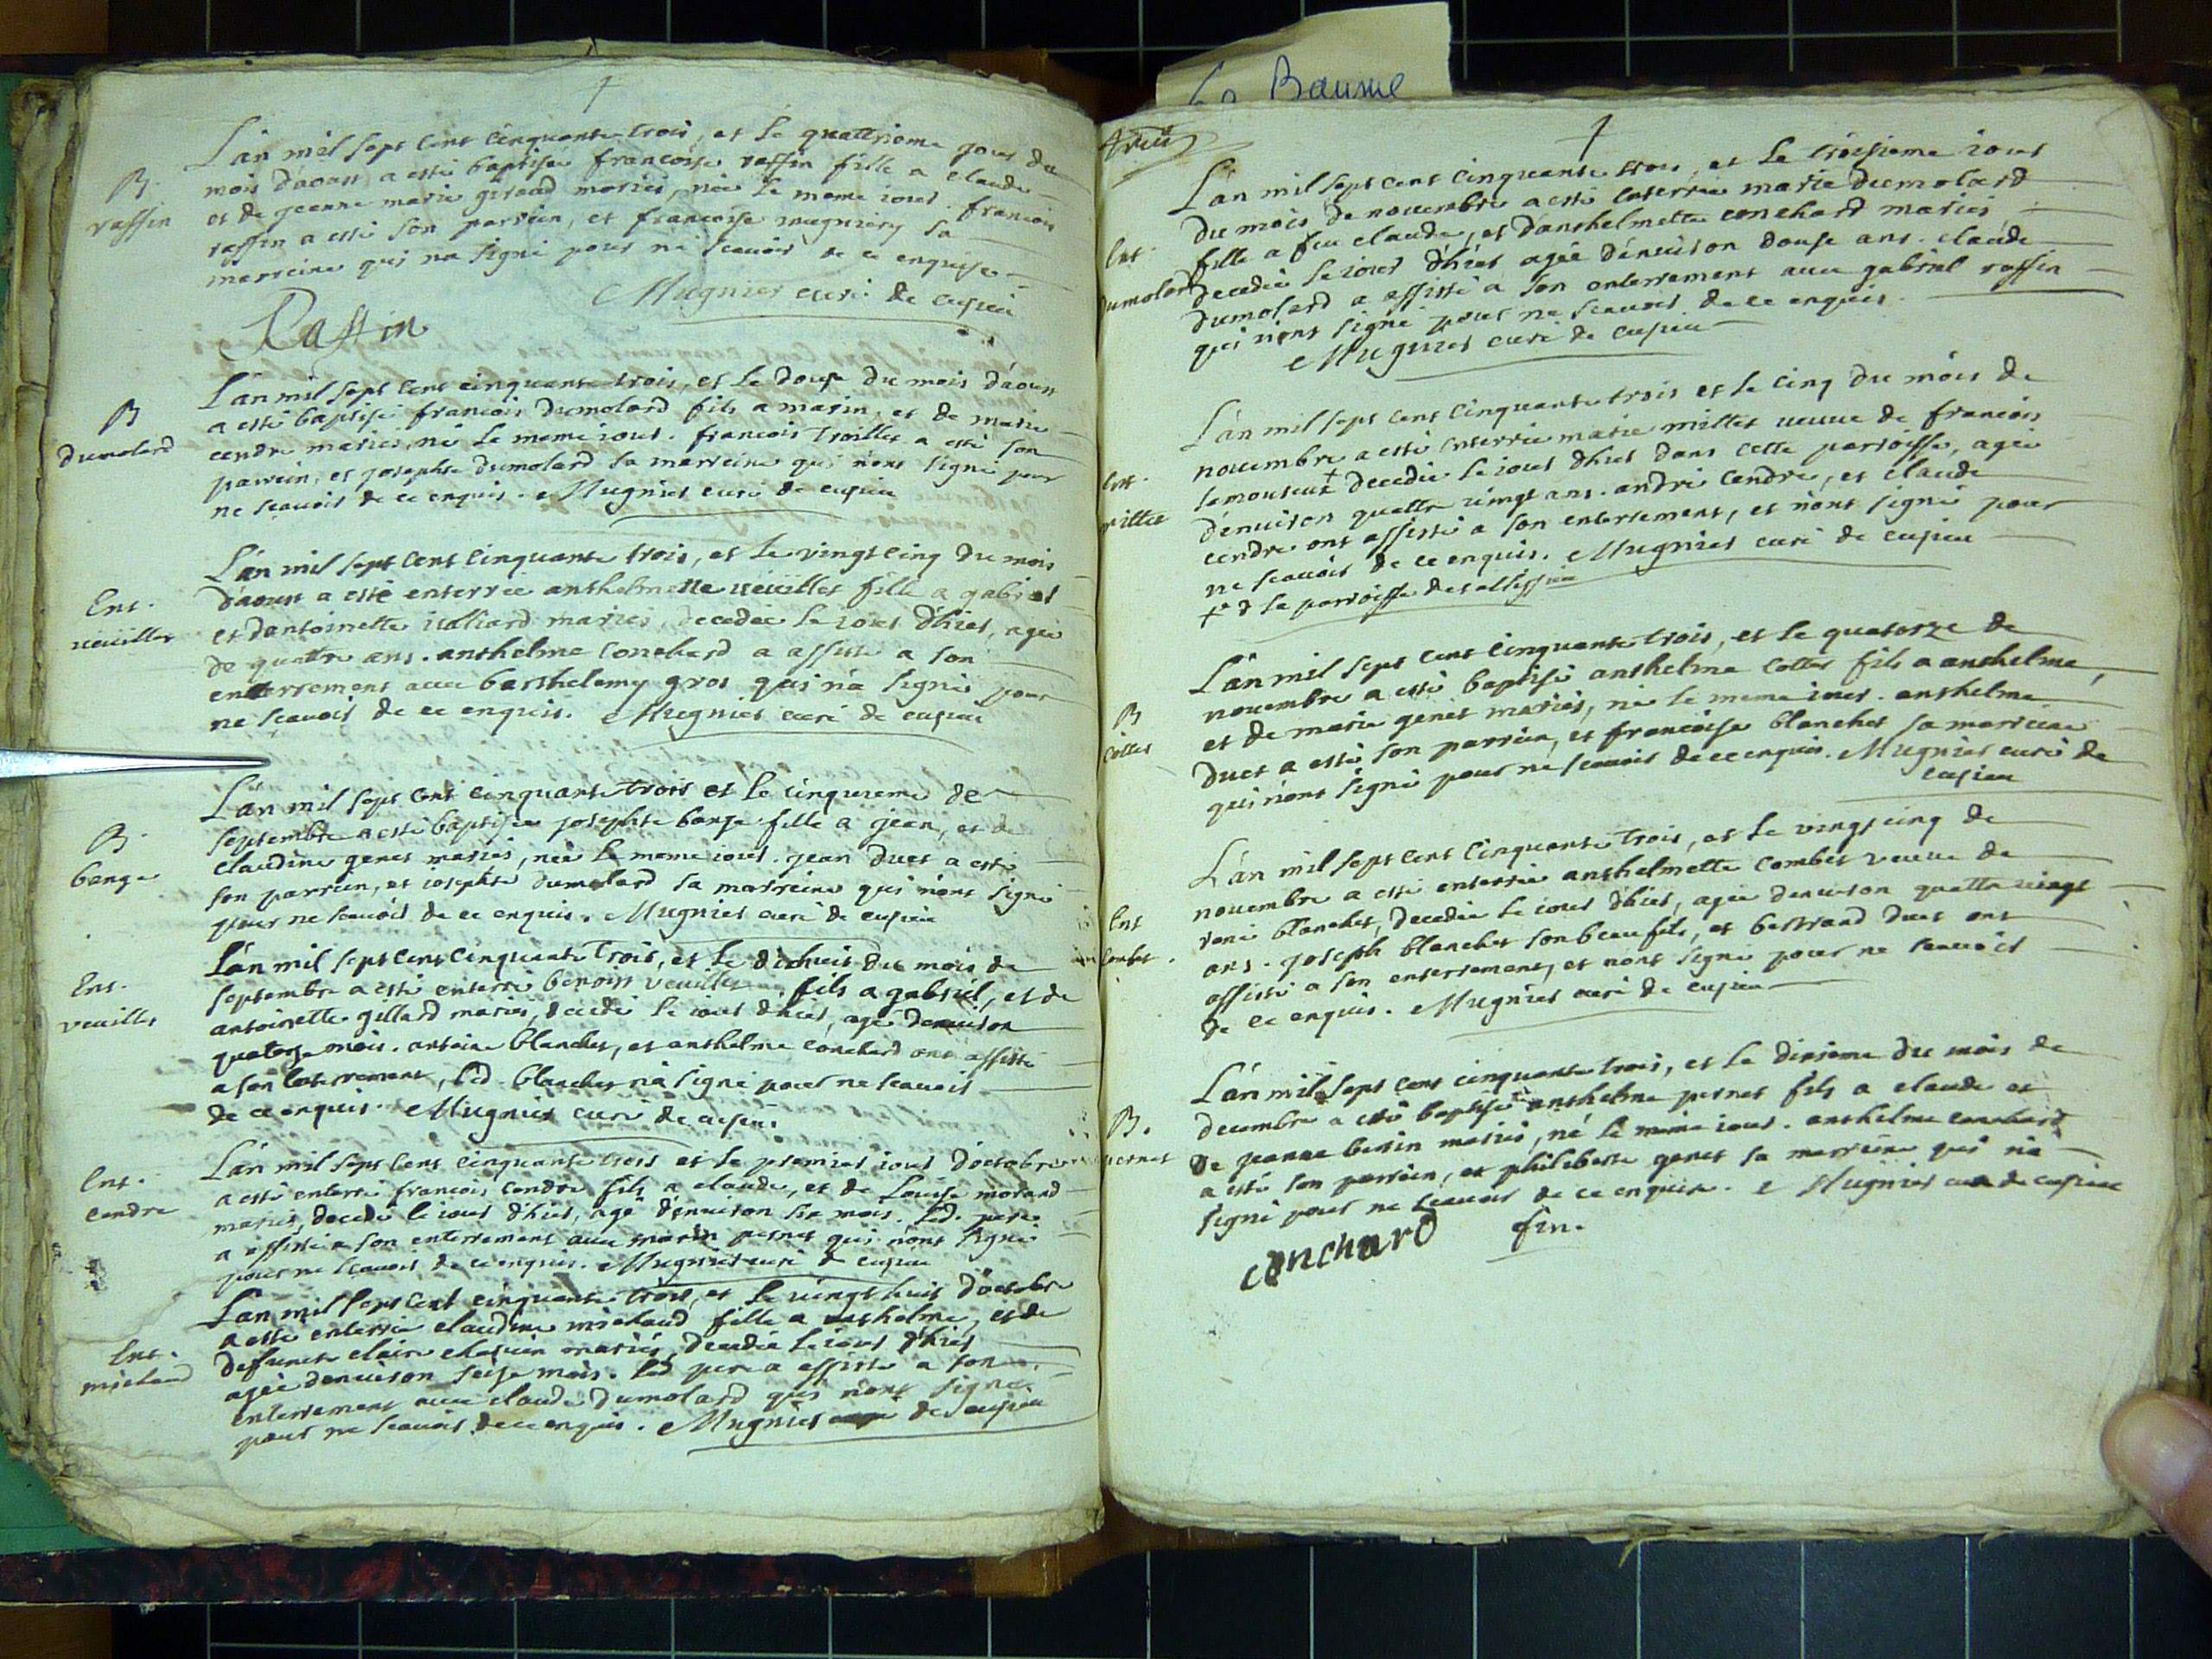 L'an mil sept cent cinquante trois, et le quattrieme jour du
B.
raffin
mois d'aoust a esté baptisée francoise raffin fille a claude
et de jeanne marie giraud mariés, née le meme iour. francois
raffin a esté son parrein, et francoise mugniery sa
marreine qui na signé pour ne scauoir de ce enquise
Mugnier curé de cuzieu
Raffin
B
dumolard
L'an mil sept cent cinquante trois, et le douse du mois d'aoust
a esté baptisé francois dumolard fils a marin, et de marie
cendre mariés, né le meme iour. francois Troillet a esté son
parrein, et josephte dumolard sa marreine qui n'ont signé pour
ne scauoir de ce enquis. Mugnier curé de cuzieu
Ent.
ueuillet
L'an mil sept cent cinquante trois, et le vingt cinq du mois
d'aoust a esté enterrée anthelmette ueuillet fille a gabriel
et d'antoinette iulliard mariés, decedée le iour d'hier, agée
de quattre ans. anthelme Conchard a assisté a son
enterrement auec barthelemy gros qui n'a signé pour
ne scauoir de ce enquis. Mugnier curé de cuzieu
B.
barge
L'an mil sept cent cinquante trois et le cinquieme de
septembre a esté baptisée josephte barge fille a jean, et de
claudine genet mariés, née le meme iour. jean duet a esté
son parrein, et iosephte dumolard sa marreine qui n'ont signé
pour ne scauoir de ce enquis. Mugnier curé de cuzieu
Ent.
veuillet
L'an mil sept cent cinquante trois, et le dixhuit du mois de
septembre a esté enterré benoist veuillet fils a gabriel, et de
antoinette gillard mariés, decedé le iour d'hier, agé denuiron
quatorze mois. antoine blanchet, et anthelme conchard ont assisté
a son enterrement, led. blanchet n'a signé pour ne scauoir
de ce enquis. Mugnier curé de cuzieu
Ent.
cendre
L'an mil sept cent cinquante trois et le premier iour d'octobre
a esté enterré francois cendre fils a claude, et de Louise morand
mariés, decedé le iour d'hier, agé d'enuiron six mois. Led. pere
a assisté a son enterrement auec marin pernet qui n'ont signé
pour ne scauoir de ce enquis. Mugnier curé de cuzieu
Ent.
michaud
L'an mil sept cent cinquante trois, et le vingt huit d'octobre
a esté enterrée claudine michaud fille a anthelme, et de
defuncte claire mariés, decedée le iour d'hier
agée denuiron seize mois. led pere a assisté a son
enterrement auec claude dumolard qui n'ont signé
pour ne scauoir de ce enquis. Mugnier curé de cuzieu
La Baume
Ent.
dumolard
L'an mil sept cent cinquante trois, et le troisieme iour
du mois de nouembre a esté enterrée marie dumolard
fille a feu claude, et d'anthelmette conchard mariés,
decedée le iour d'hier agée d'enuiron douse ans. claude
dumolard a assisté a son enterrement auec gabriel raffin
qui n'ont signé pour ne scauoir de ce enquis.
Mugnier curé de cuzieu
Ent.
millet
L'an mil sept cent cinquante trois et le cinq du mois de
nouembre a esté enterrée marie millet ueuue de francois
lemouteux + decedée le iour d'hier dans cette parroisse, agée
d'enuiron quattre vingt ans. andré cendre, et claude
cendre ont assisté a son enterrement, et n'ont signé pour
ne scauoir de ce enquis. Mugnier curé de cuzieu
+ d la parroisse
B
Collet
L'an mil sept cent cinquante trois, et le quatorze de
nouembre a esté baptisé anthelme Collet fils a anthelme,
et de marie genet mariés, né le meme iour. anthelme
duet a esté son parrein, et francoise blanchet sa marreine
qui n'ont signé pour ne scauoir de ce enquis. Mugnier curé de
cuzieu
Ent
Combet.
L'an mil sept cent cinquante trois, et le vingt cinq de
nouembre a esté enterrée anthelmette combet veuue de
rené blanchet, decedée le iour d'hier, agée denuiron quattre vingt
ans. joseph blanchet son beau fils, et bertrand duet ont
assisté a son enterrement, et n'ont signé pour ne scauoir
de ce enquis. Mugnier curé de cuzieu
B.
pernet
L'an mil sept cent cinquante trois, et le dixieme du mois de
decembre a esté baptisé anthelme pernet fils a claude et
de jeanne berin mariés, né le meme iour. anthelme conchard
a esté son parrein, et philiberte genet sa marreine qui n'a
signé pour ne scauoir de ce enquise. Mugnier curé de cuzieu
conchard fin.